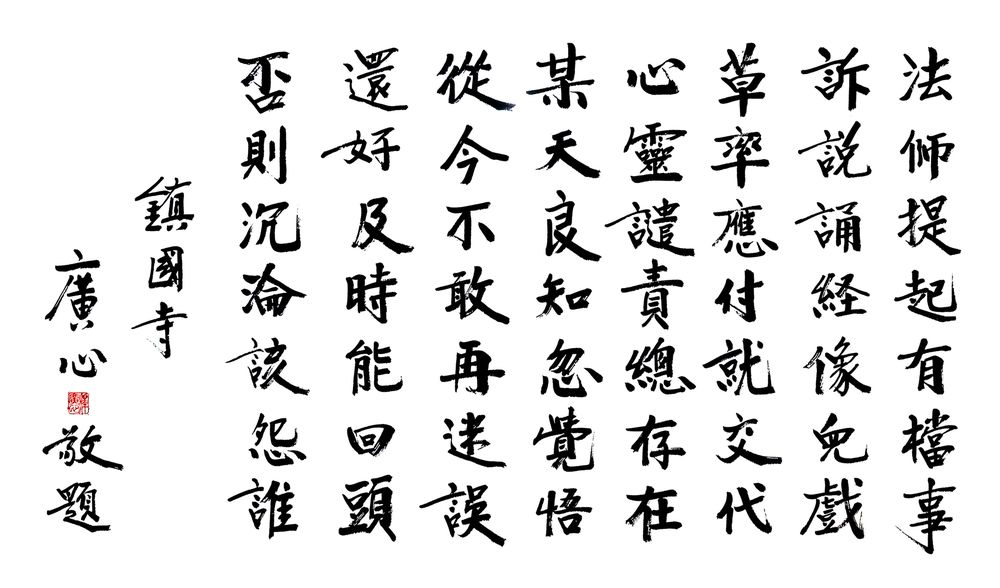 法师提起有檔事
訴説誦経像兒戲
草率應付就交代
心靈譴責總存在
某天良知忽覺悟
從今不敢再迷誤
還好及時能回頭
否則沉淪該怨誰
鎮國寺
廣心
敬題